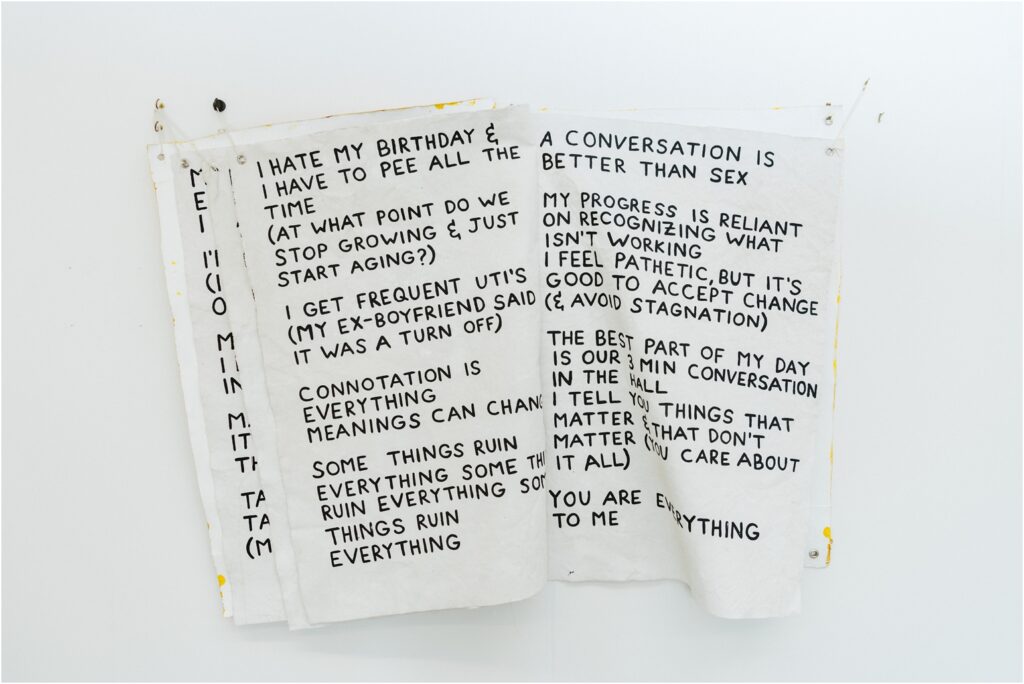 M
E
I
I'
(I
O
M
I
IN
M
IT
TH
TA
TA
(M
I HATE MY BIRTHDAY &
I HAVE TO PEE ALL THE
TIME
(AT WHAT POINT DO WE
STOP GROWING & JUST
START AGING?)
I GET FREQUENT UTI'S
(MY EX-BOYFRIEND SAID
IT WAS A TURN OFF)
CONNOTATION IS
EVERYTHING
MEANINGS CAN CHANG
SOME THINGS RUIN
EVERYTHING SOME THI
RUIN EVERYTHING SOM
THINGS RUIN
EVERYTHING
A CONVERSATION IS
BETTER THAN SEX
MY PROGRESS IS RELIANT
ON RECOGNIZING WHAT
ISN'T WORKING
I FEEL PATHETIC, BUT IT'S
GOOD TO ACCEPT CHANGE
(& AVOID STAGNATION)
THE BEST PART OF MY DAY
IS OUR 3 MIN CONVERSATION
IN THE HALL
I TELL YOU THINGS THAT
MATTER & THAT DON'T
MATTER (YOU CARE ABOUT
IT ALL)
YOU ARE EVERYTHING
TO ME